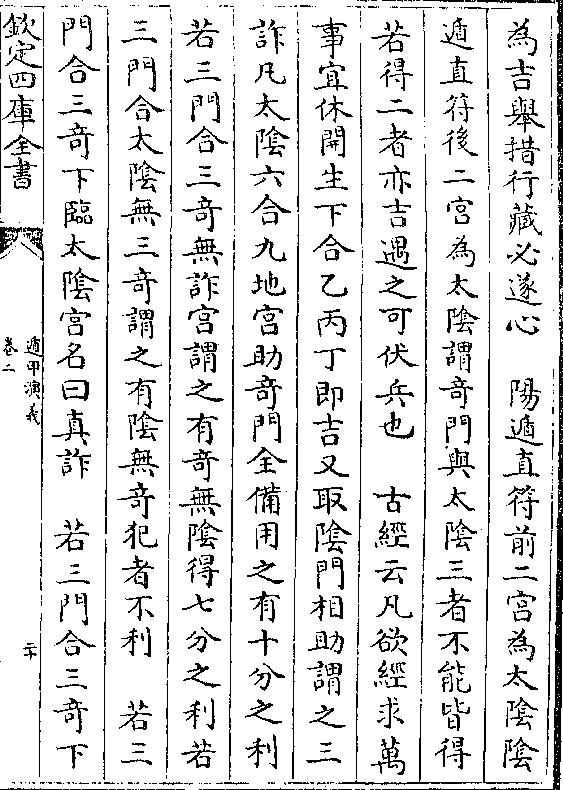 為吉舉措行藏必遂心　陽遁直符前二宮為太陰陰
遁直符後二宮為太陰謂竒門與太陰三者不能皆得
若得二者亦吉遇之可伏兵也　古經云凡欲經求萬
事宜休開生下合乙丙丁即吉又取陰門相助謂之三
詐凡太陰六合九地宮助竒門全備用之有十分之利
若三門合三竒無詐宮謂之有竒無陰得七分之利若
三門合太陰無三竒謂之有陰無竒犯者不利　若三
門合三竒下臨太陰宮名曰真詐　若三門合三竒下
欽定四庫全書
遁甲演義
卷二
二十